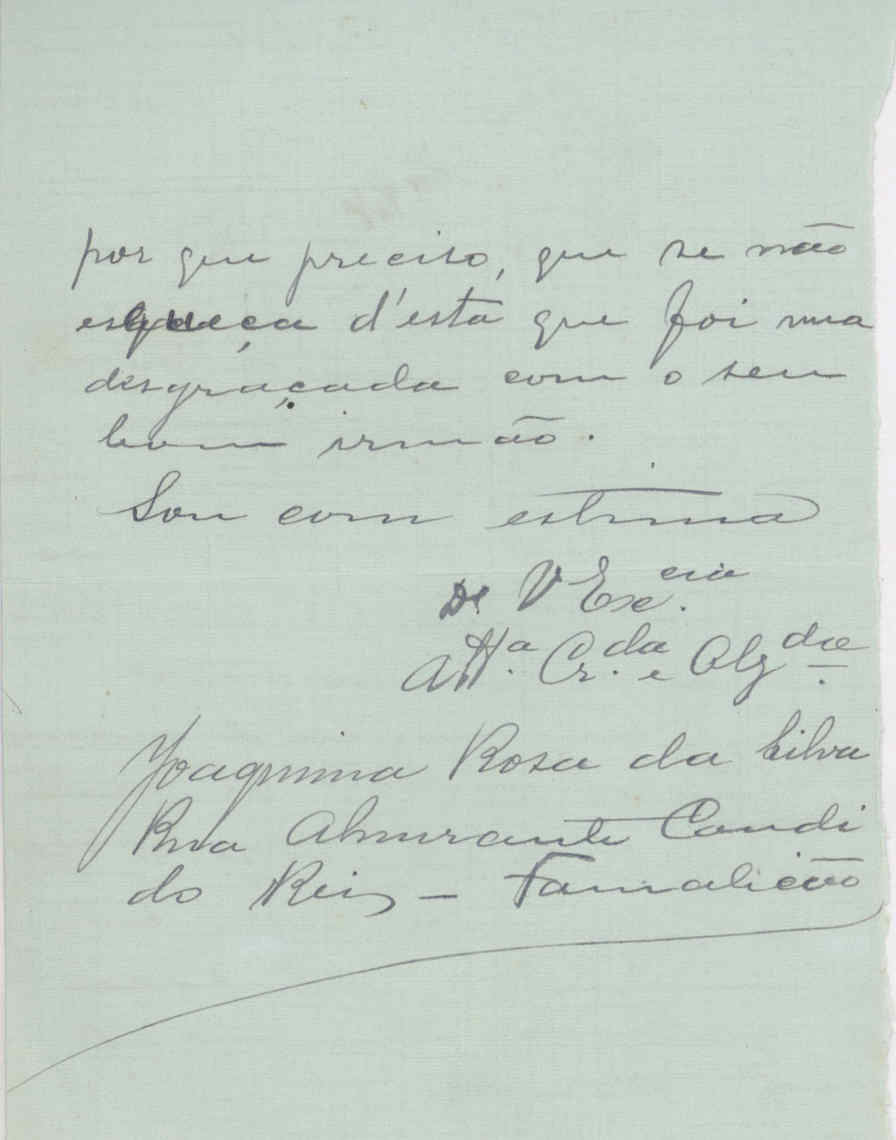 por que preciso, que se não
esqueça d'esta que foi uma
desgraçada com o seu
bom irmão.
Sou com estima
De V Exc.cia
Att.a Cr.da e Obg.da
Joaquina Rosa da Silva
Rua Almirante Candi
do Reis – Famalicão